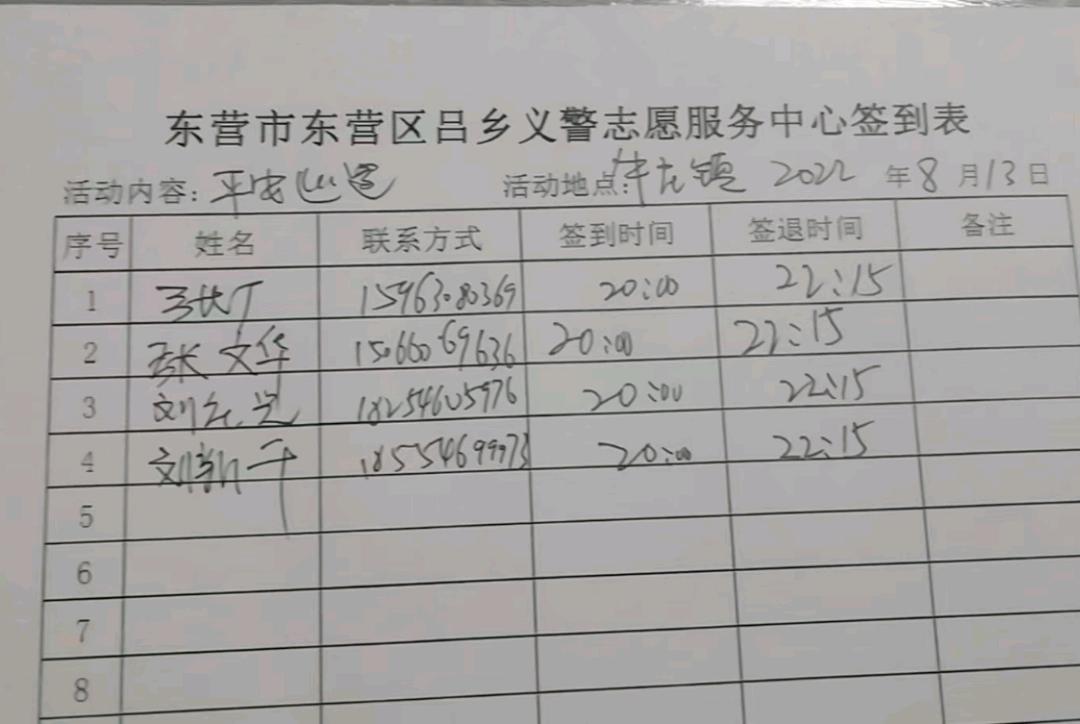 东营市东营区吕乡义警志愿服务中心签到表
活动内容: 平安巡逻 活动地点: 牛庄镇 2022 年 8 月 13 日
序号 姓名 联系方式 签到时间 签退时间 备注
1 15963080369 20:00 22:15
2 张文华 15066069636 20:00 22:15
3 刘 18254605976 20:00 22:15
4 刘 18554699973 20:00 22:15
5
6
7
8